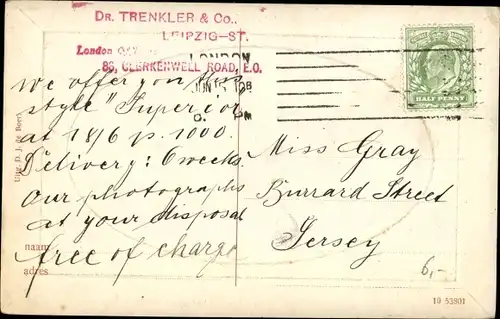 DR. TRENKLER & CO.,
LEIPZIG-ST.
London
LONDON
89, CLERKENWELL ROAD, E.O.
JUN
HALF PENNY
We offer you this
style "Superior
at 18/6 p. 1000.
Delivery: 6 weeks.
Our photographs
at your disposal
free of charge
Miss Gray
Burrard Street
Jersey
Uitg. D. J. de Boer
naam
adres
6,-
19 53901